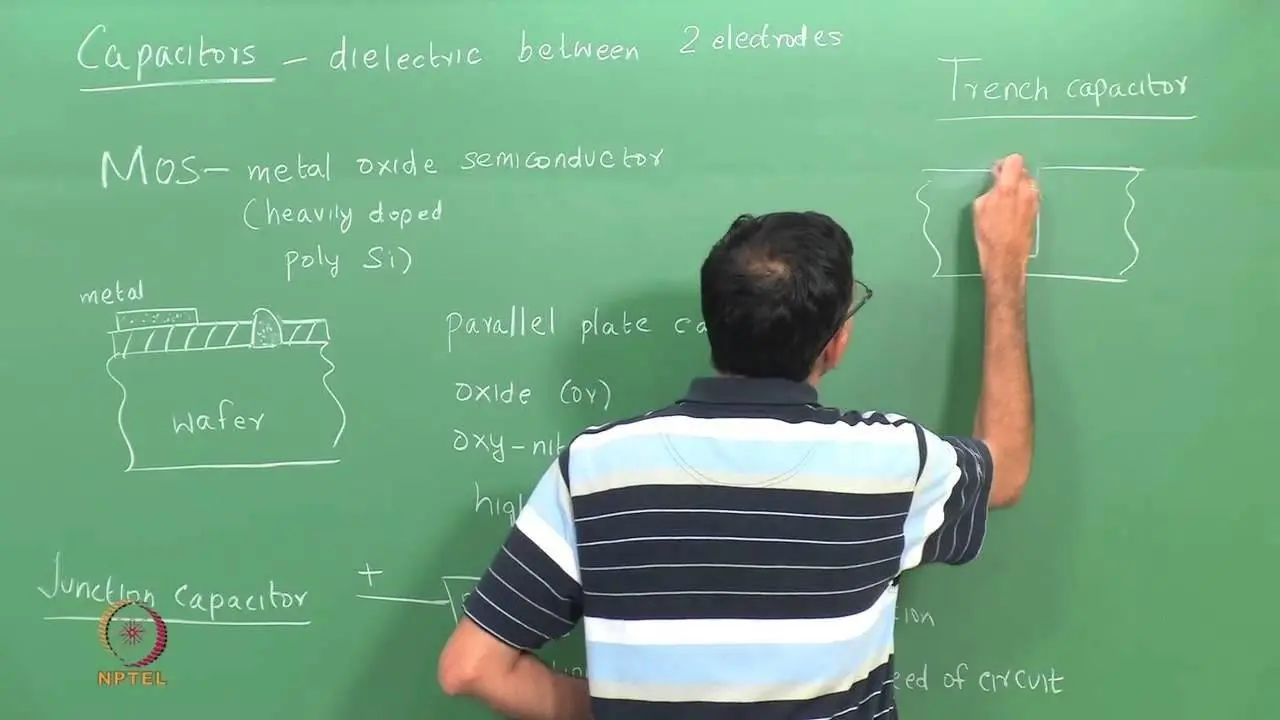 Capacitors – dielectric between 2 electrodes
Trench capacitor
MOS – metal oxide semiconductor
(heavily doped
poly Si)
metal
wafer
parallel plate
oxide (or)
Junction capacitor
+
of circuit
NPTEL